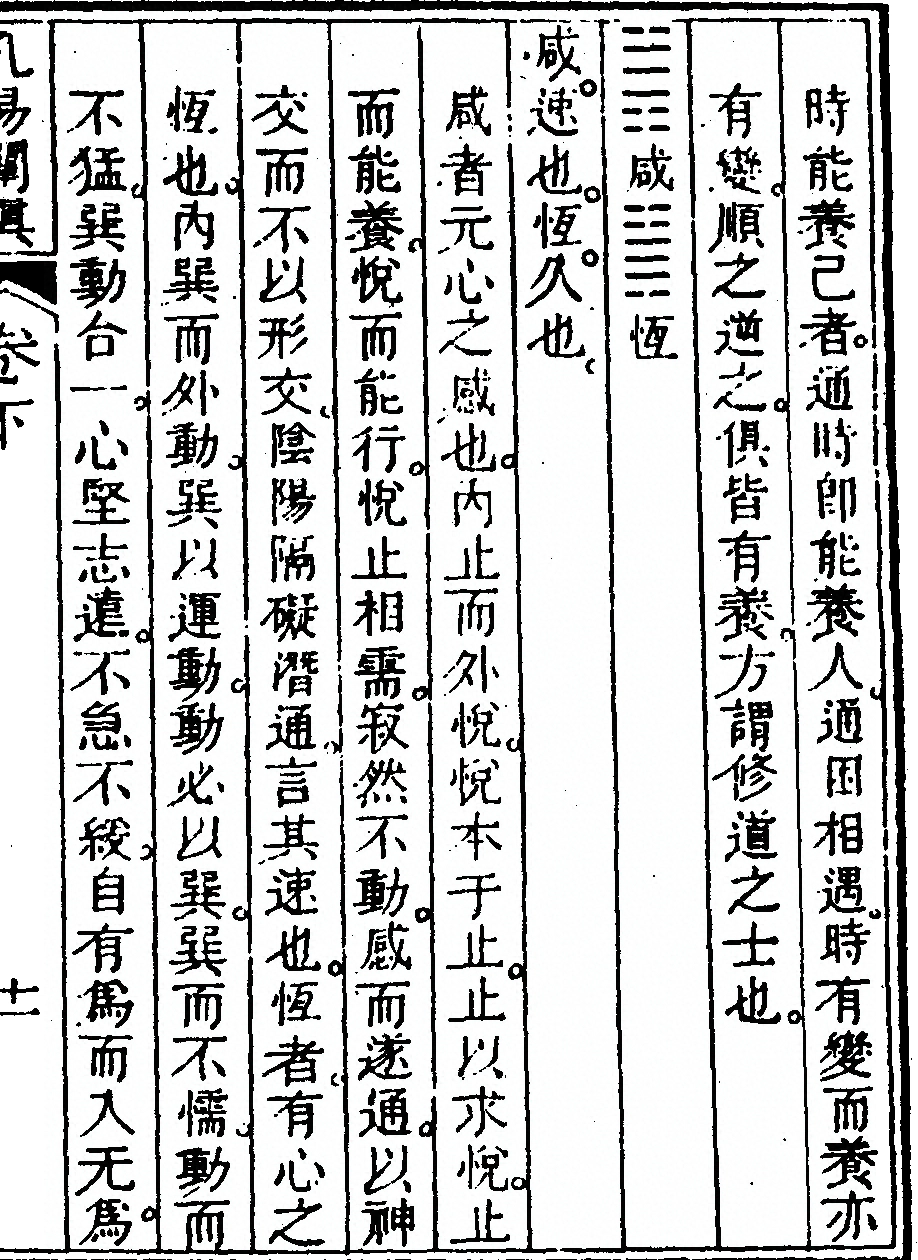 時能養己者。通時即能養人。通困相遇。時有變而養亦
有變。順之逆之。俱皆有養。方謂修道之士也。
䷞咸䷟恆
咸。速也。恆。久也。
咸者元心之感也。內止而外悅。悅本于止。止以求悅。止
而能養。悅而能行。悅止相需。寂然不動。感而遂通。以神
交而不以形交。陰陽隔礙潛通。言其速也。恆者。有心之
恆也。內巽而外動。巽以運動。動必以巽。巽而不懦。動而
不猛。巽動台一。心堅志遠。不急不緩。自有為而入无為。
易闡真 卷下 十一